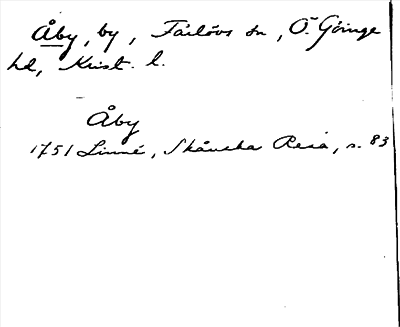 Åby, by, Färlövs sn, Ö. Göinge
hd, Krist. l.
Åby
1751 Linné, Skånska Resa, s. 83